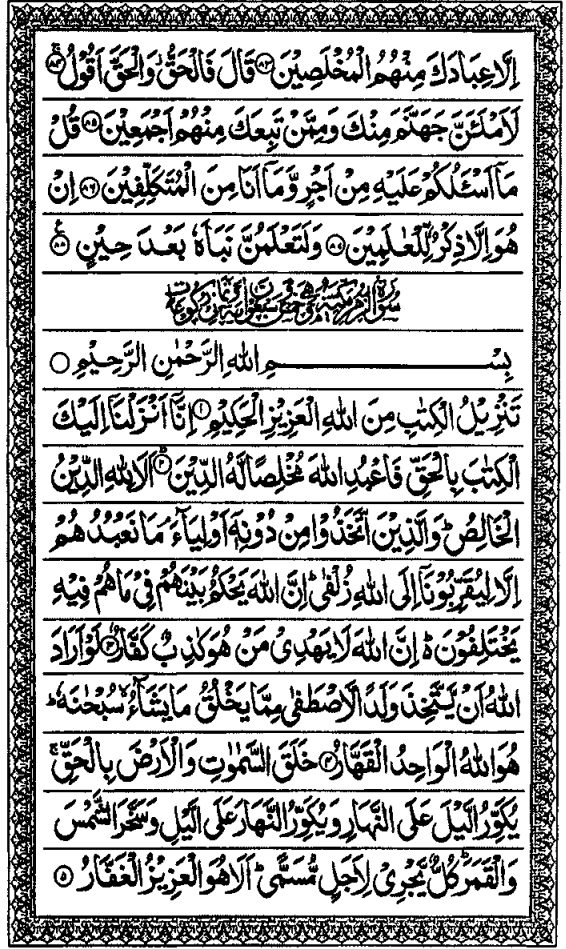 اِلَّا عِبَادَكَ مِنْهُمُ الْمُخْلَصِيْنَ ۝۸۳ قَالَ فَالْحَقُّ وَالْحَقَّ اَقُوْلُ ۝۸۴
لَاَمْلَـَٔنَّ جَهَنَّمَ مِنْكَ وَمِمَّنْ تَبِعَكَ مِنْهُمْ اَجْمَعِيْنَ ۝۸۵ قُلْ
مَاۤ اَسْـَٔلُكُمْ عَلَيْهِ مِنْ اَجْرٍ وَّمَاۤ اَنَا مِنَ الْمُتَكَلِّفِيْنَ ۝۸۶ اِنْ
هُوَ اِلَّا ذِكْرٌ لِّلْعٰلَمِيْنَ ۝۸۷ وَلَتَعْلَمُنَّ نَبَاَهٗ بَعْدَ حِيْنٍ ۝۸۸
بِسْمِ اللّٰهِ الرَّحْمٰنِ الرَّحِيْمِ ۝
تَنْزِيْلُ الْكِتٰبِ مِنَ اللّٰهِ الْعَزِيْزِ الْحَكِيْمِ ۝۱ اِنَّاۤ اَنْزَلْنَاۤ اِلَيْكَ
الْكِتٰبَ بِالْحَقِّ فَاعْبُدِ اللّٰهَ مُخْلِصًا لَّهُ الدِّيْنَ ۝۲ اَلَا لِلّٰهِ الدِّيْنُ
الْخَالِصُ ؕ وَالَّذِيْنَ اتَّخَذُوْا مِنْ دُوْنِهٖۤ اَوْلِيَآءَ ۘ مَا نَعْبُدُهُمْ
اِلَّا لِيُقَرِّبُوْنَاۤ اِلَى اللّٰهِ زُلْفٰى ؕ اِنَّ اللّٰهَ يَحْكُمُ بَيْنَهُمْ فِيْ مَا هُمْ فِيْهِ
يَخْتَلِفُوْنَ ؕ اِنَّ اللّٰهَ لَا يَهْدِيْ مَنْ هُوَ كٰذِبٌ كَفَّارٌ ۝۳ لَوْ اَرَادَ
اللّٰهُ اَنْ يَّتَّخِذَ وَلَدًا لَّاصْطَفٰى مِمَّا يَخْلُقُ مَا يَشَآءُ ۙ سُبْحٰنَهٗ ؕ
هُوَ اللّٰهُ الْوَاحِدُ الْقَهَّارُ ۝۴ خَلَقَ السَّمٰوٰتِ وَالْاَرْضَ بِالْحَقِّ ۚ
يُكَوِّرُ الَّيْلَ عَلَى النَّهَارِ وَيُكَوِّرُ النَّهَارَ عَلَى الَّيْلِ وَسَخَّرَ الشَّمْسَ
وَالْقَمَرَ ؕ كُلٌّ يَّجْرِيْ لِاَجَلٍ مُّسَمًّى ؕ اَلَا هُوَ الْعَزِيْزُ الْغَفَّارُ ۝۵